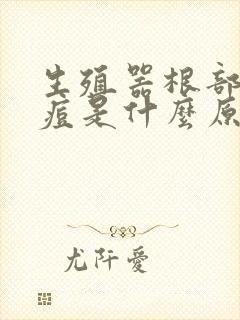 生殖器根部
痘是什麼原
尤阡愛